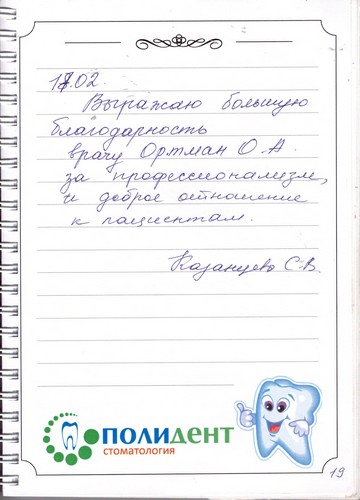 17.02.
Выражаю большую
благодарность
врачу Ортман О.А.
за профессионализм,
и доброе отношение
к пациентам.
Казанцева С.В.
ПОЛИДЕНТ
СТОМАТОЛОГИЯ
19